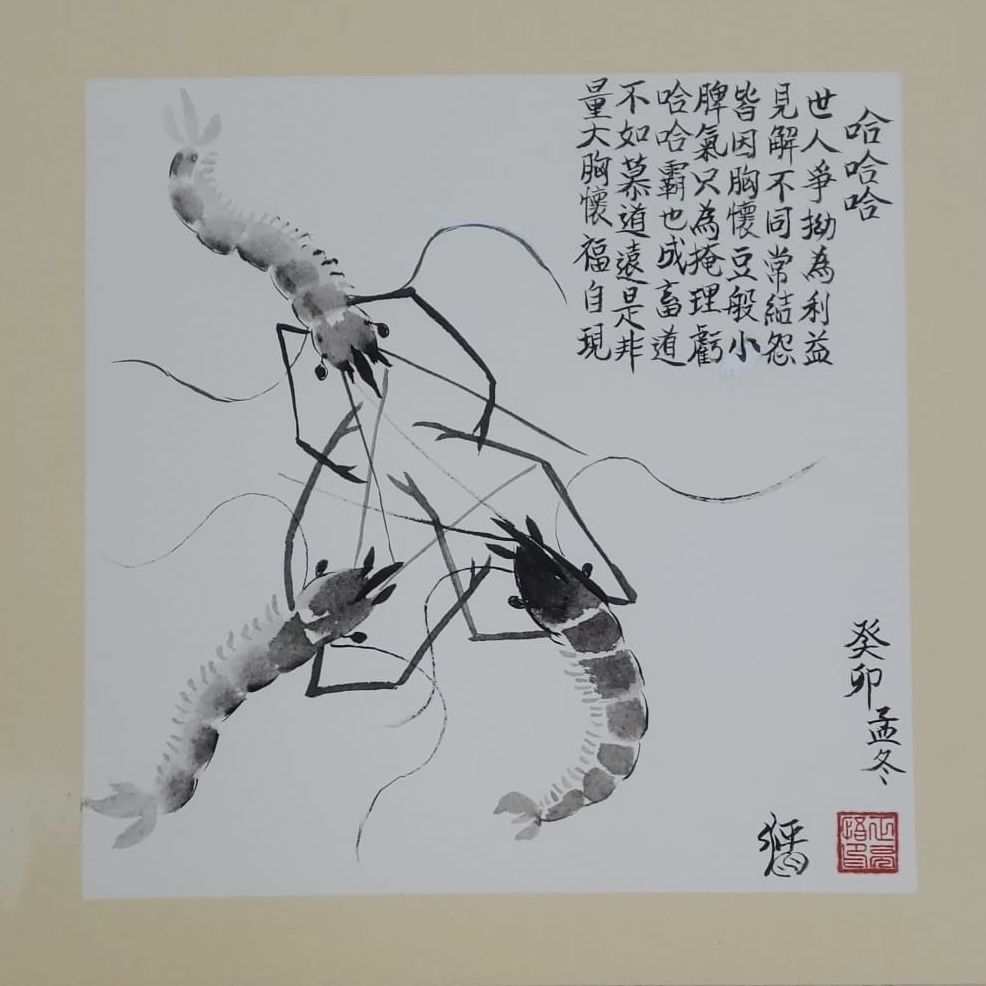 哈哈哈
世人爭拗為利益
見解不同常結怨
皆因胸懷豆般小
脾氣只為掩理虧
哈哈霸也成畜道
不如慕道遠是非
量大胸懷福自現
癸卯孟冬